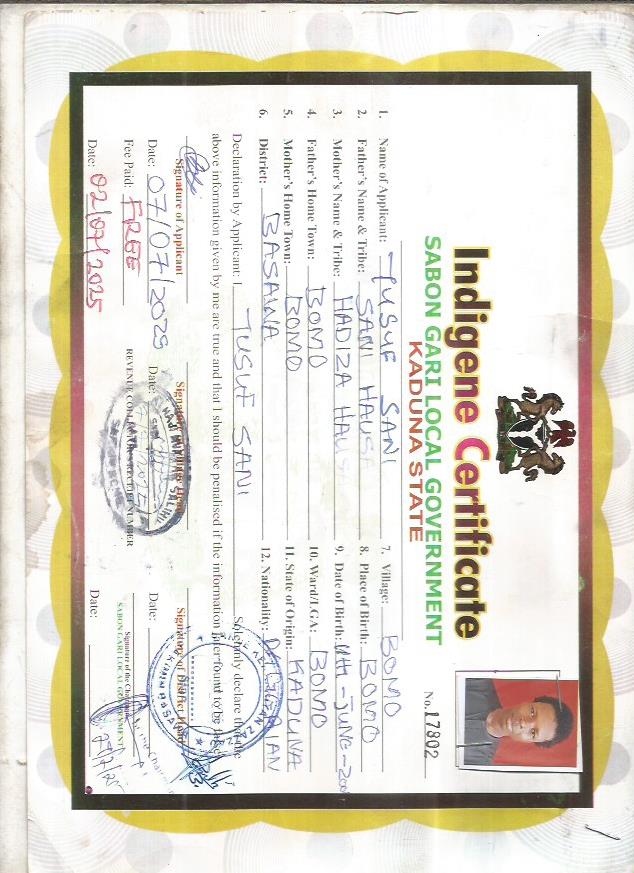 Indigene Certificate
SABON GARI LOCAL GOVERNMENT
KADUNA STATE
No. 17802
1. Name of Applicant: YUSUF SANI
2. Father's Name & Tribe: SANI HAUSA
3. Mother's Name & Tribe: HADIZA HAUSA
4. Father's Home Town: BOMO
5. Mother's Home Town: BOMO
6. District: BASAWA
7. Village: BOMO
8. Place of Birth: BOMO
9. Date of Birth: -JUNE-200
10. Ward/LGA: BOMO
11. State of Origin: KADUNA
12. Nationality:
Declaration by Applicant: I YUSUF SANI Solemnly declare that the
above information given by me are true and that I should be penalised if the information later found to be
Signature of Applicant
Signature of District Head
Date: 07/07/2025 Date: Date:
Fee Paid: FREE
REVENUE COLLECTOR RECEIPT NUMBER
Signature of the Chairman
SABON GARI LOCAL GOVERNMENT
Date: 02/07/2025
Date: